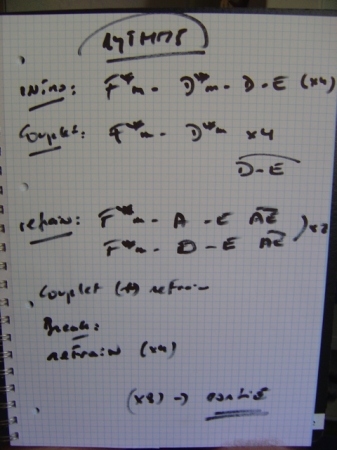 RYTHMES
intro: F#m - D#m - D - E (x4)
Couplet: F#m - D#m x4
D - E
refrain: F#m - A - E AE ) x2
F#m - D - E AE
Couplet (+) refrain
Break:
refrain (x4)
(x8) →